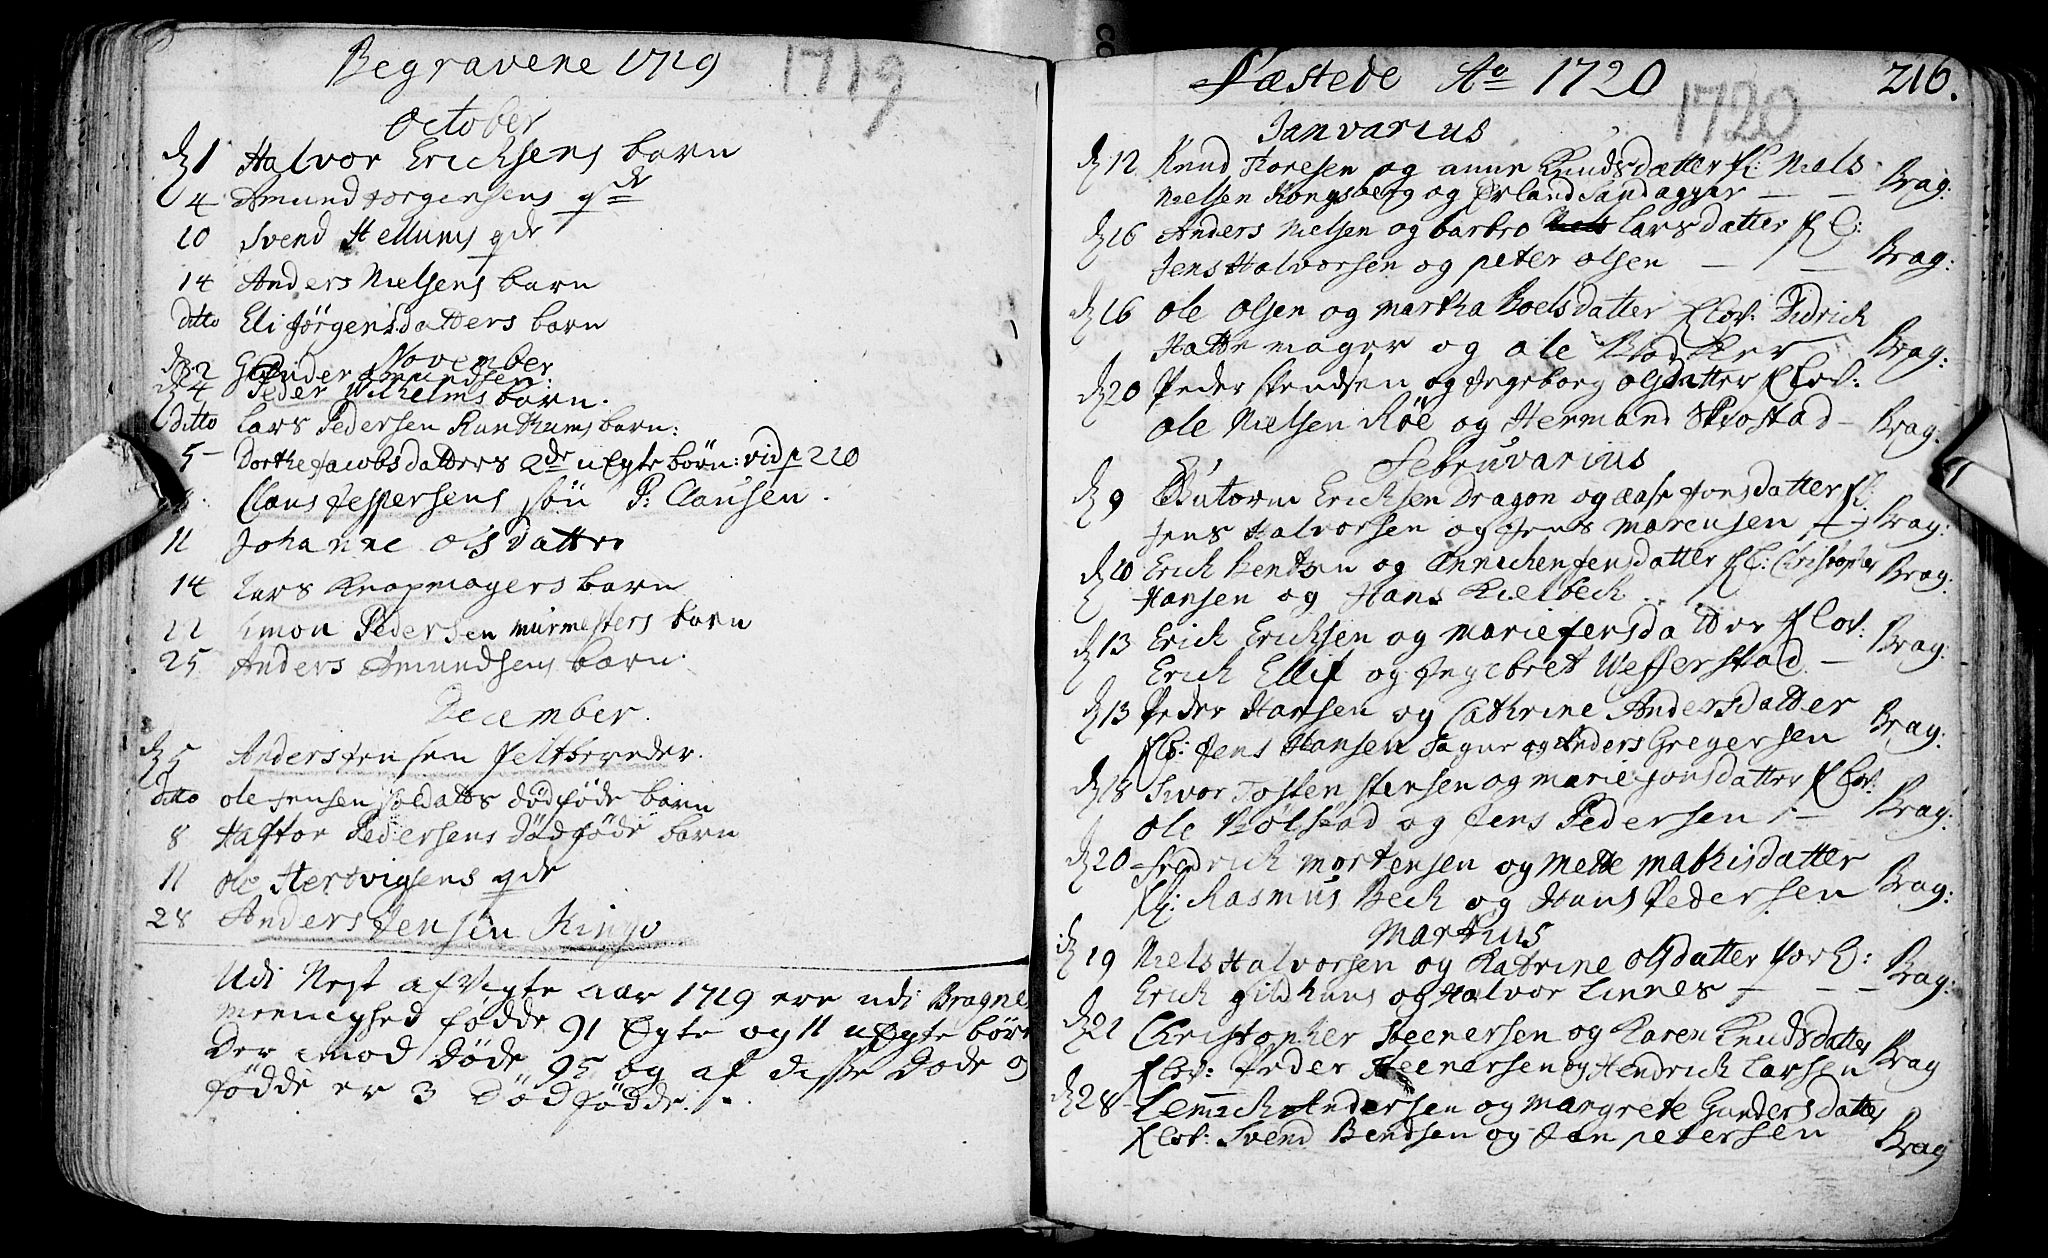 Begravene 1719 1719
October
d 1 Halvor Erichsens barn
4 Amund Jorgensens qde
10 Svend Hellums qde
14 Anders Nielsens barn
ditto Eli Jörgensdatters barn
November
d 2 Gunder Amundsen:
d 4 Peder Wilhelms barn.
ditto Lars Pedersen barn:
5 Dorthe Jacobsdatters 2de uEgte börn: vid p 220
Claus Jespersens sön P: Clausen.
11 Johanne olsdatter
14 Lars Knapmagers barn
22 Simon Pedersen murmesters barn
25 Anders Amundsens barn.
December.
d 5 Anders Jensen feltbereder.
ditto ole Jensen soldatts dödföde barn
8 Haftor Pedersens dödföde barn
11 ole Hertvigsens qde
28 Anders Jensen Ringo
Udi Nest afVigte aar 1719 ere udi Bragnes
mennighed födde 91 Egte og 11 uEgte börn
Der imod döde 95 og af disse Dode og
födde er 3 Dödfödde.
Fæstede Ao 1720 1720 216.
Janvarius
d 12 Knud Toresen og anne Knudsdatter fl: Niels
Nielsen Kongsberg og Erland Sandager — — Brag:
d 16 Anders Nielsen og barbro Larsdatter fl:
Jens Halvorsen og peter olsen — — Brag:
d 16 ole olsen og martha Boelsdatter flov: Didrich
Hatte mager og ole Bödker Brag:
d 20 Peder Svendsen og Ingeborg olsdatter flov:
ole Nielsen Röe og Hermand Skiostad — Brag.
Februvarius
d 9 Gutorm Erichsen Dragon og aase Jonsdatter fl:
Jens Halvorsen og Jens marensen Brag:
d 10 Erich Bentsen og Annichen Jensdatter fl: Christopher
Hansen og Hans Kielbech Brag:
d 13 Erich Erichsen og marie Jensdatter flov:
Erich Ellif og Ingebret Wefferstad — Brag:
d 13 Peder Hansen og Cathrine Andersdatter
flo: Jens Hansen Sagur og Anders Gregersen Brag:
d 18 Iver Tostenstensen og marie Jonsdatter flov:
ole Bölstad og Jens Pedersen — Brag:
d 20 Fredrich mortensen og Mette mathisdatter
fl: Rasmus Bech og Hans Pedersen Brag:
Martius
d 19 Niels Halvorsen og Katrine olsdatter
Erich Gildhuus og Halvor Linnes — — Brag:
d 21 Christopher Steenersen og Karen Knudsdatter
flov: Peder Steenersen og Hendrich Larsen Brag
d 28 Lemmich Andersen og margrete Gundersdatter
flov: Svend Bendsen og Jan petersen Brag